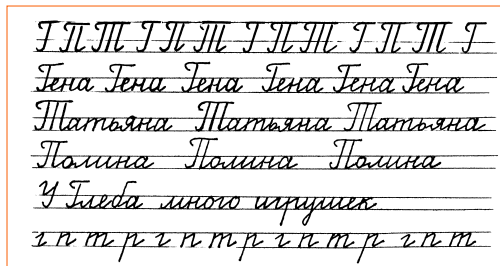 Г П Т Г П Т Г П Т Г П Т Г
Гена Гена Гена Гена Гена Гена
Татьяна Татьяна Татьяна
Полина Полина Полина
У Глеба много игрушек
г п т р г п т р г п т р г п т